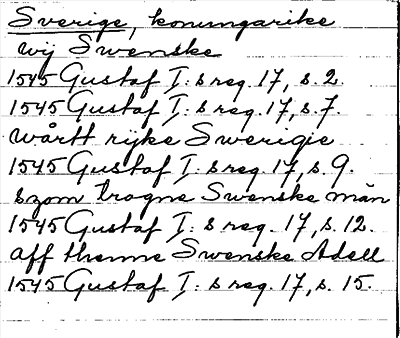 Sverige, konungarike
wij Swenske
1545 Gustaf I: s reg. 17, s. 2.
1545 Gustaf I: s reg. 17, s. 7.
wårtt rijke Swerigie
1545 Gustaf I: s reg. 17, s. 9.
szom trogne Swenske män
1545 Gustaf I: s reg. 17, s. 12.
aff thenne Swenske Adell
1545 Gustaf I: s reg. 17, s. 15.